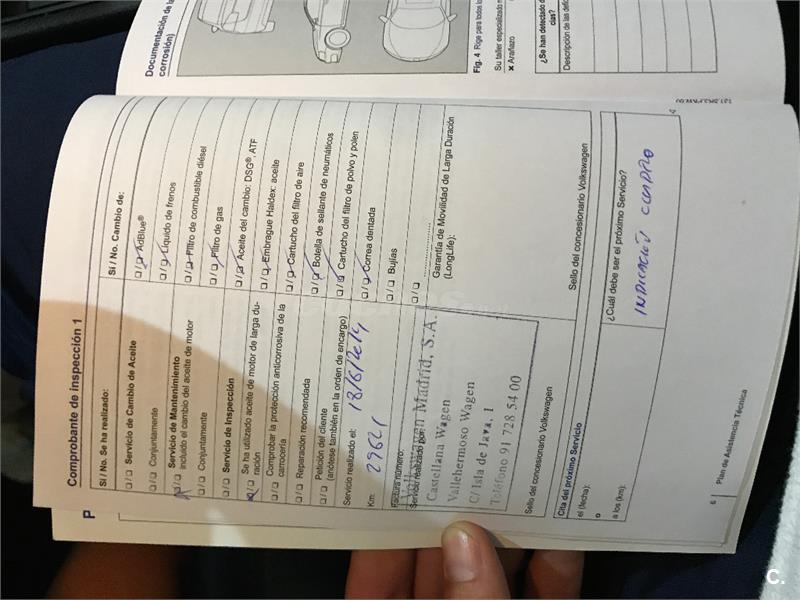 Comprobante de inspección 1
Sí / No. Se ha realizado:
Servicio de Cambio de Aceite
Conjuntamente
Servicio de Mantenimiento
incluido el cambio del aceite de motor
Conjuntamente
Servicio de Inspección
Se ha utilizado aceite de motor de larga du-
ración
Comprobar la protección anticorrosiva de la
carrocería
Reparación recomendada
Petición del cliente
(anótese también en la orden de encargo)
Servicio realizado el:
Km:
Factura número:
Servicio realizado por:
Volkswagen Madrid, S.A.
Castellana Wagen
Vallehermoso Wagen
C/ Isla de Java, 1
Teléfono 91 728 54 00
Sello del concesionario Volkswagen
Sí / No. Cambio de:
AdBlue®
Líquido de frenos
Filtro de combustible diésel
Filtro de gas
Aceite del cambio: DSG®, ATF
Embrague Haldex: aceite
Cartucho del filtro de aire
Botella de sellante de neumáticos
Cartucho del filtro de polvo y polen
Correa dentada
Bujías
Garantía de Movilidad de Larga Duración
(LongLife):
Sello del concesionario Volkswagen
Cita del próximo Servicio
el (fecha):
o
a los (km):
¿Cuál debe ser el próximo Servicio?
INDICACIÓN CUADRO
6
Plan de Asistencia Técnica
Documentación de la
corrosión)
Fig. 4 Rige para todos lo
Su taller especializado
× Arañazo
¿Se han detectado d
cias?
Descripción de las defi
P
C.